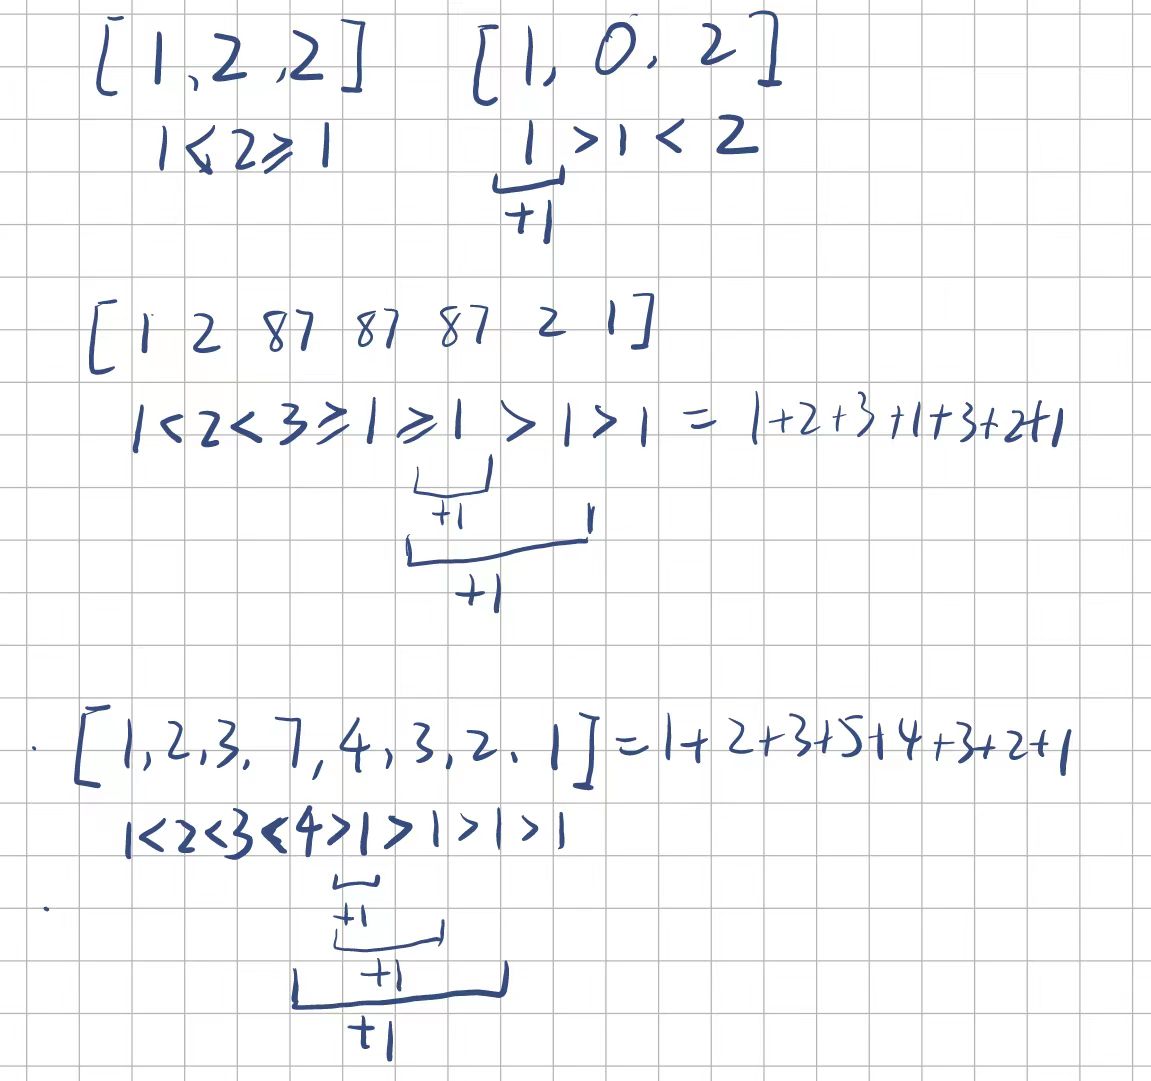 [1,2,2] [1,0,2]
1<2≥1 1>1<2
+1
[1 2 87 87 87 2 1]
1<2<3≥1≥1>1>1 = 1+2+3+1+3+2+1
+1
+1
[1,2,3,7,4,3,2,1]=1+2+3+5+4+3+2+1
1<2<3<4>1>1>1>1
+1
+1
+1